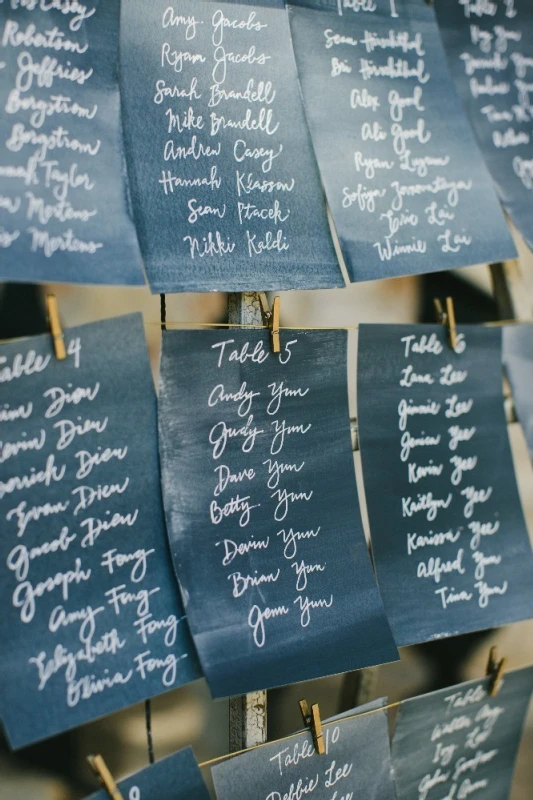 Casey
Robertson
Jeffries
Borgstrom
Borgstrom
Taylor
Mertens
Mertens
Amy Jacobs
Ryan Jacobs
Sarah Brandell
Mike Brandell
Andrew Casey
Hannah Klasson
Sean Ptacek
Nikki Kaldi
Table 1
Sean
Bri
Alex Good
Ali Good
Ryan
Sofiya
Eric Lai
Winnie Lai
Table 2
Table 4
Dien
Dien
Dien
Evan Dien
Jacob Dien
Joseph Fong
Amy Fong
Elizabeth Fong
Olivia Fong
Table 5
Andy Yun
Judy Yun
Dave Yun
Betty Yun
Devin Yun
Brian Yun
Jenn Yun
Table 6
Lana Lee
Ginnie Lee
Jenica Yee
Kevin Yee
Kaitlyn Yee
Karissa Yee
Alfred Yun
Tina Yun
Table 10
Debbie Lee
Table